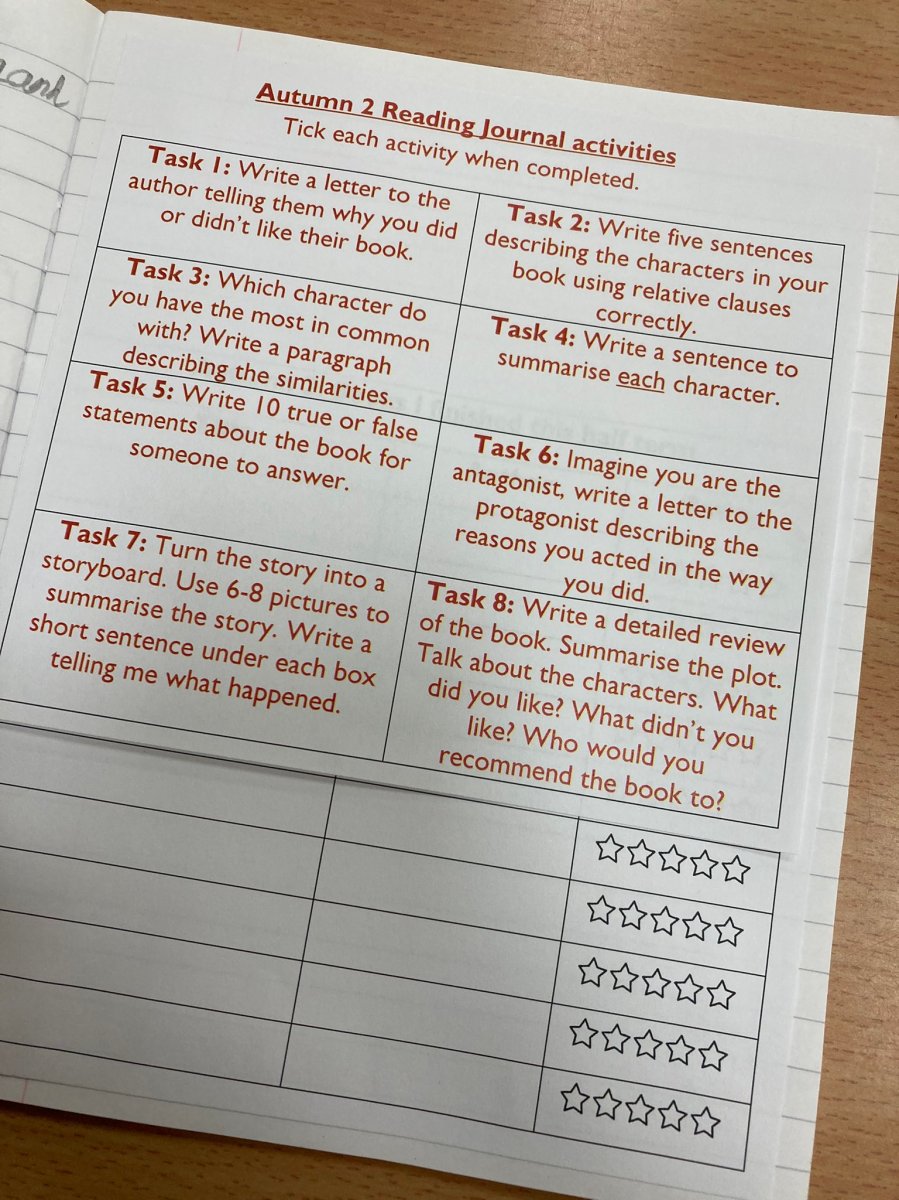 Autumn 2 Reading Journal activities
Tick each activity when completed.
Task 1: Write a letter to the
author telling them why you did
or didn't like their book.
Task 2: Write five sentences
describing the characters in your
book using relative clauses
correctly.
Task 3: Which character do
you have the most in common
with? Write a paragraph
describing the similarities.
Task 4: Write a sentence to
summarise each character.
Task 5: Write 10 true or false
statements about the book for
someone to answer.
Task 6: Imagine you are the
antagonist, write a letter to the
protagonist describing the
reasons you acted in the way
you did.
Task 7: Turn the story into a
storyboard. Use 6-8 pictures to
summarise the story. Write a
short sentence under each box
telling me what happened.
Task 8: Write a detailed review
of the book. Summarise the plot.
Talk about the characters. What
did you like? What didn't you
like? Who would you
recommend the book to?